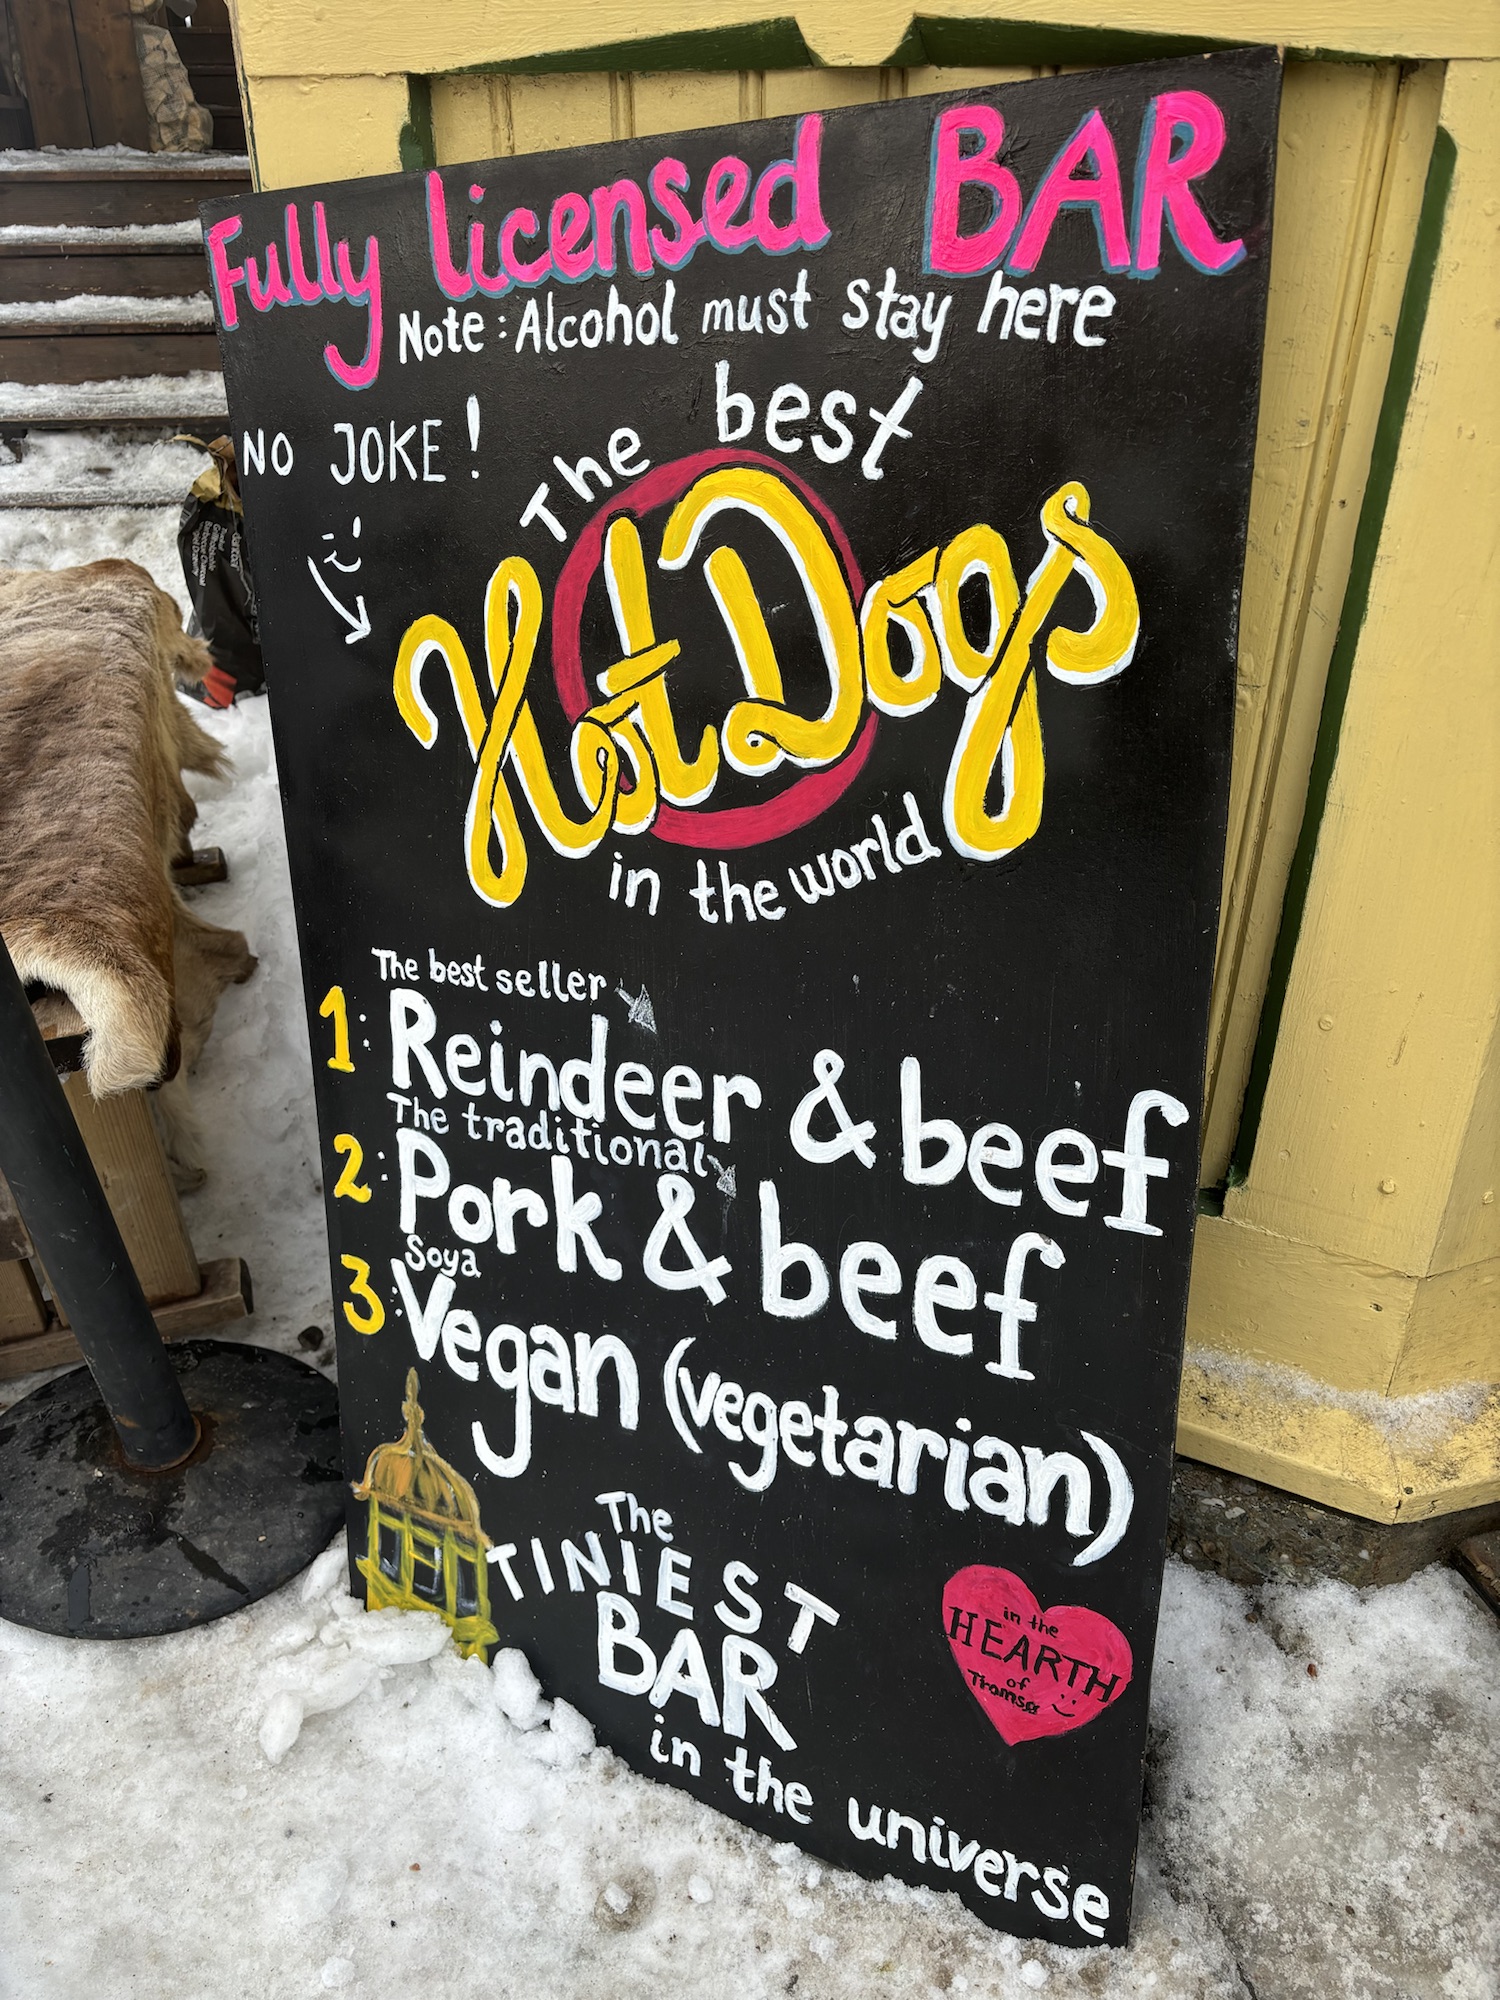 Fully licensed BAR
Note: Alcohol must stay here
NO JOKE!
The best
Hot Dogs
in the world
The best seller
1: Reindeer & beef
The traditional
2: Pork & beef
Soya
3: Vegan (vegetarian)
The
TINIEST
BAR
in the universe
in the
HEARTH
of
Tromsø